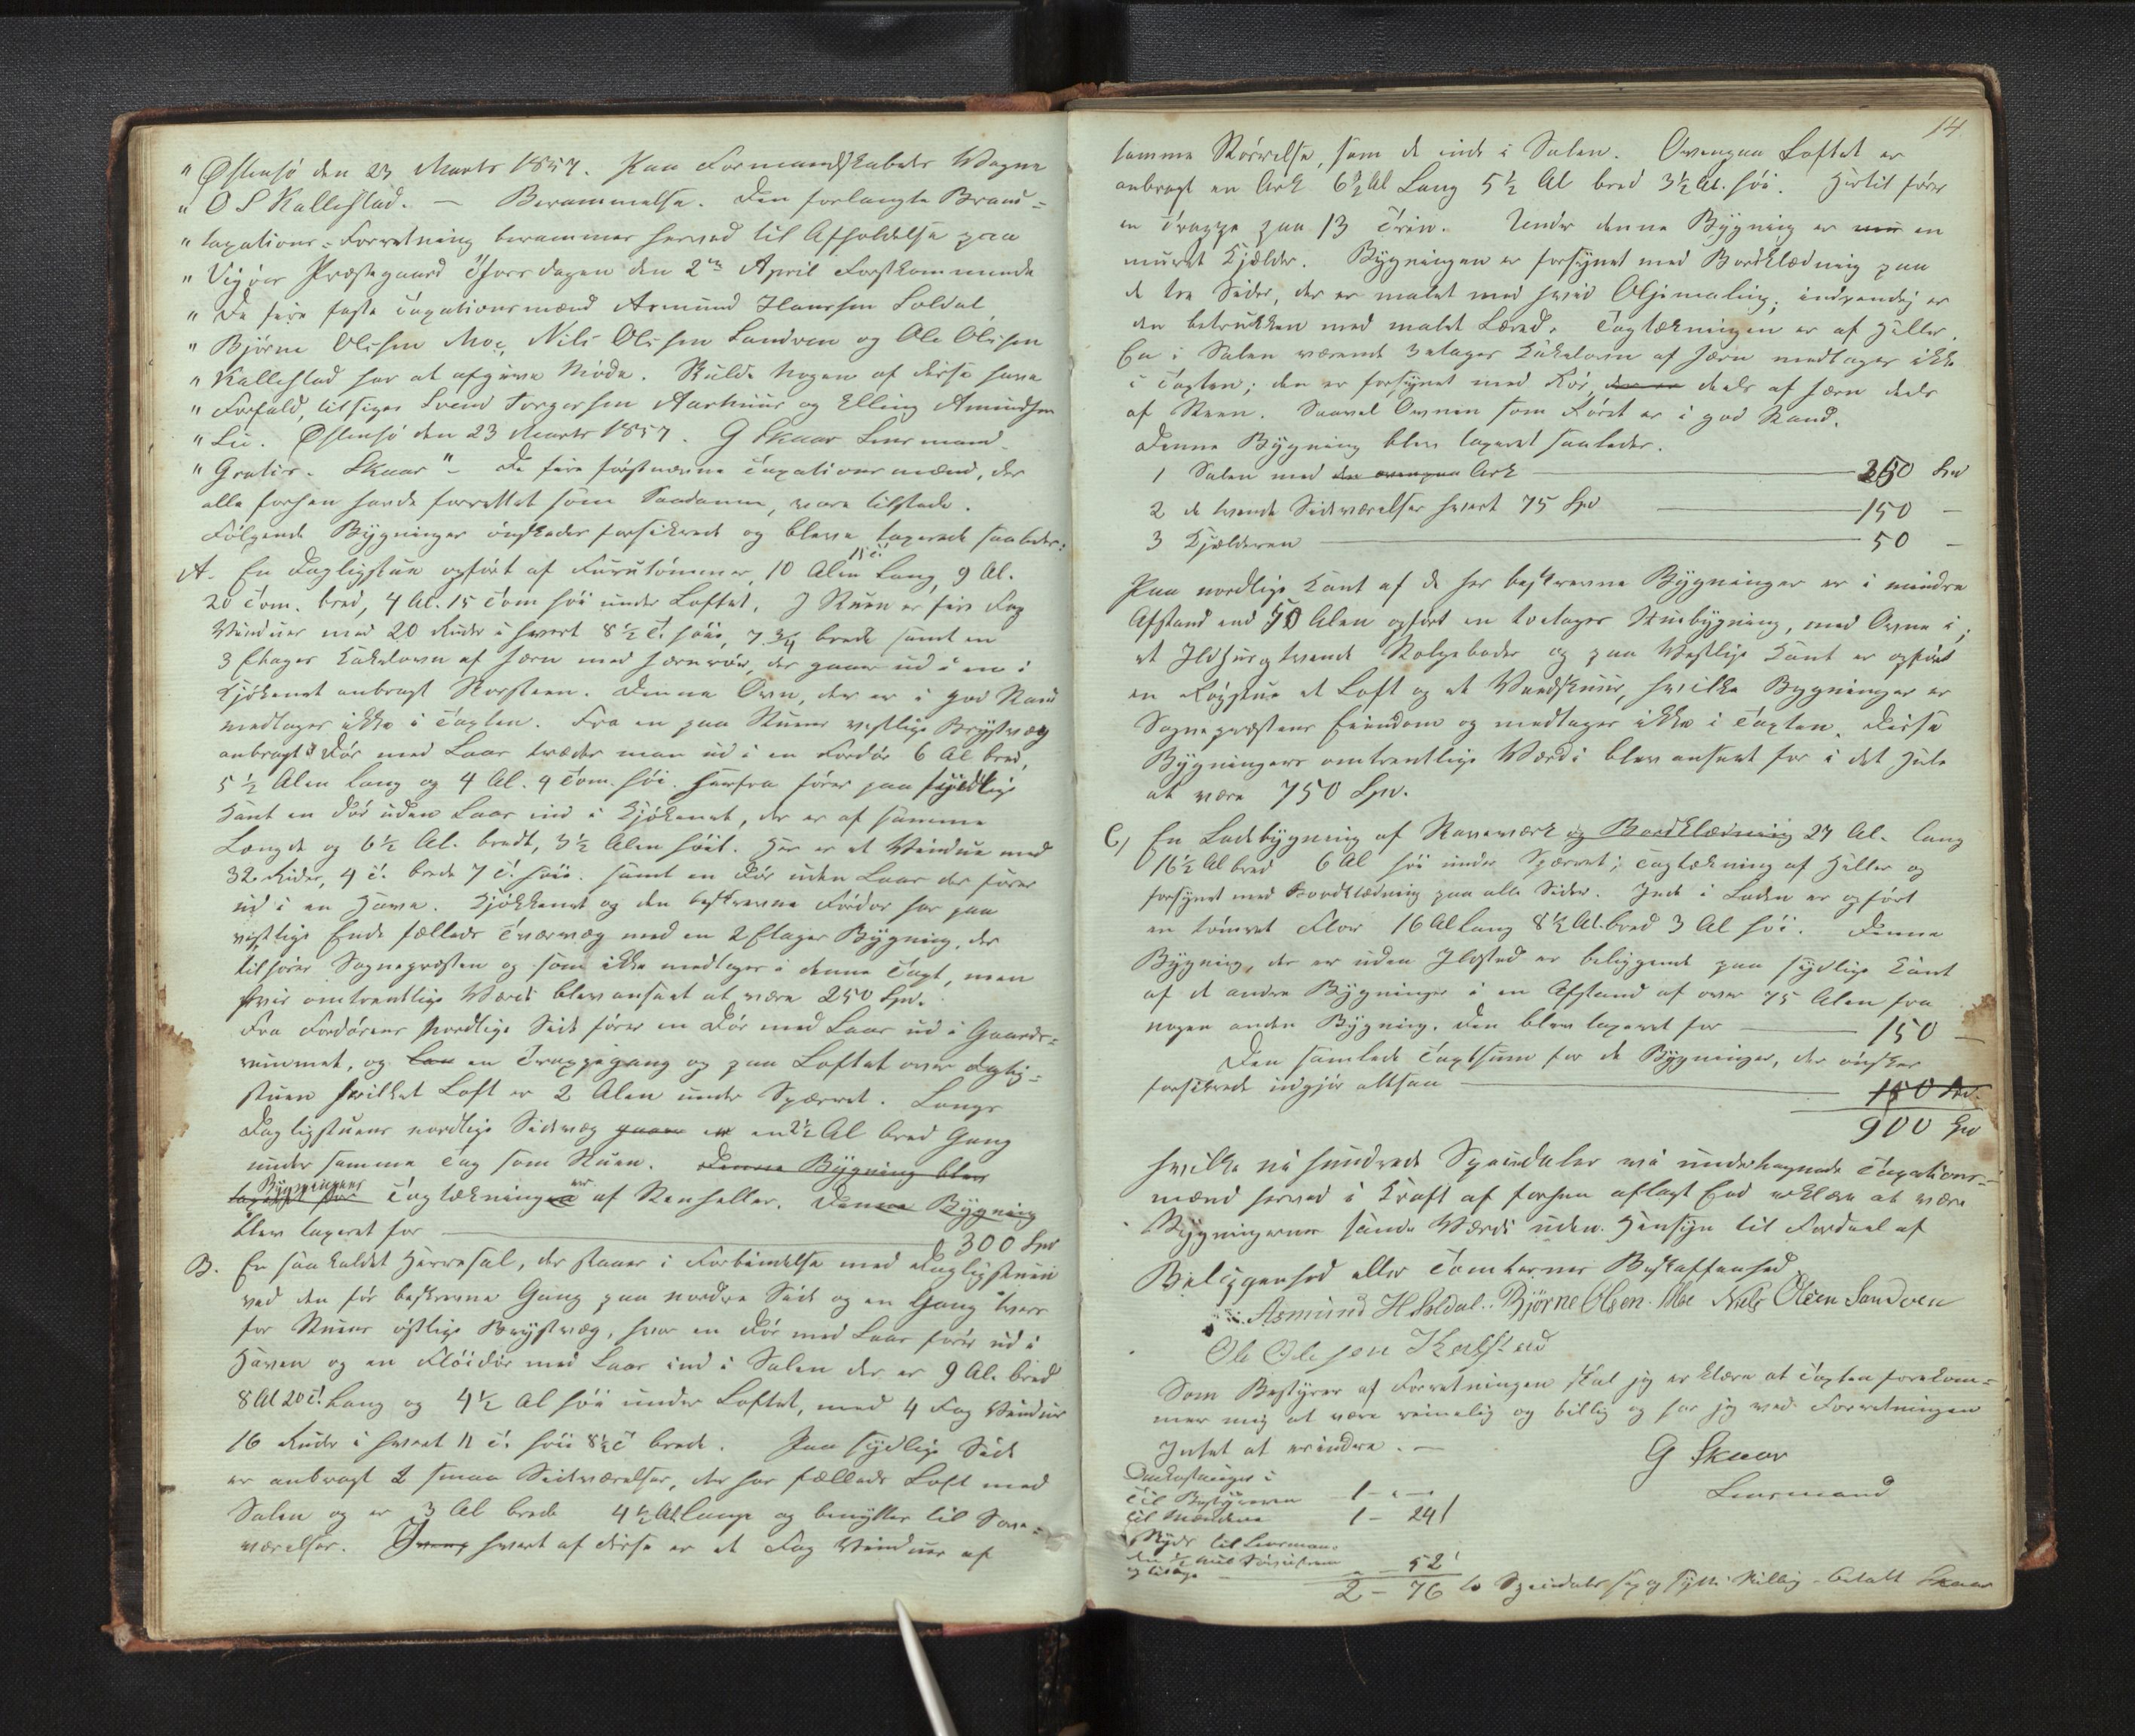 " Østensø den 23 Marts 1857. Paa Formandskabets Vegne
" O S Kallestad. — Berammelse. Den forlangte Brand=
" taxations=Forretning berammes herved til Afholdelse paa
" Vigøers Præstegaard Thorsdagen den 2den April Førstkommende
" De fire faste Taxationsmænd Asmund Hansen Soldal,
" Bjørne Olsen Moe, Nils Olsen Sandven og Ole Olsen
" Kallestad har at afgive Møde. Skulde Nogen af disse have
" Forfald, tilsiges Svend Torgersen Aarhuus og Elling Amundsen
" Lie. Østensø den 23 Marts 1857. G Skaar Lensmand
" Gratis. Skaar" – De fire førstnævne Taxationsmænd, der
alle forhen havde forrettet som Saadanne, vare tilstede.
Følgende Bygninger ønskedes forsikrede og bleve taxerede saaledes:
A. En Dagligstue opført af Furutømmer, 10 Alen 15 T. Lang, 9 Al.
20 Tom. bred, 4 Al. 15 Tom høi under Loftet. I Stuen er fire Fag
Vinduer med 20 Ruder i hvert 8½ T. høie, 7¾ brede samt en
3 Etages Kakelovn af Jern med Jernrør, der gaar ud i en i
Kjøkenet anbragt Skorsteen. Denne Ovn, der er i god Stand
medtages ikke i Taxten. Fra en paa Stuens vestlige Brystvæg
anbragt Dør med Laas træder man ud i en Fordør 6 Al bred,
5½ Alen lang og 4 Al. 9 Tom. høi. Herfra fører paa sydlige
Kant en Dør uden Laas ind i Kjøkenet, der er af samme
Længde og 6½ Al. bredt, 3½ Alen høit. Her er et Vindue med
32 Ruder, 4 T. brede 7 T. høie. samt en Dør uden Laas der fører
ud i en Have. Kjøkkenet og den beskrevne Fordør har paa
vestlige Ende fælleds Tværvæg med en 2 Etages Bygning, der
tilhører Sognepræsten og som ikke medtages i denne Taxt, men
hvis omtrentlige Værdi blev anseet at være 250 Spd.
Fra Fordørens Nordlige Side fører en Dør med Laas ud i Gaards=
rummet, og en Trappegang op paa Loftet over Daglig=
stuen hvilket Loft er 2 Alen under Sperret. Langs
Dagligstuens nordlige Sidevæg gaaer er en 2½ Al bred Gang
under samme Tag som Stuen. Denne Bygning blev
taxeret for Bygningens Tagtækning er af Steenheller. Denne Bygning
blev taxeret for — 300 Spd
B. En saakaldet Herresal, der staaer i Forbindelse med Dagligstuen
ved den før beskrevne Gang paa nordre Side og en Gang tvers
for Stuens østlige Brystvæg, hvor en Dør med Laas fører ud i
Haven og en Fløidør med Laas ind i Salen der er 9 Al. bred
8 Al 20 T. Lang og 4½ Al høi under Loftet, med 4 Fag Vinduer
16 Ruder i hvert 11 T. høie 8½ T brede. Paa sydlige Side
er anbragt 2 smaa Sideværelser, der har fælleds Loft med
Salen og er 3 Al brede 4½ Al Lange og benyttes til Sove=
værelser. I hvert af disse er et Fag Vinduer af
14.
samme Størrelse, som de inde i Salen. Ovenpaa Loftet er
anbragt en Ark 6½ Al Lang 5½ Al bred 3½ Al. høi. Hertil fører
en Trappe paa 13 Trin. Under denne Bygning er en
muret Kjælder. Bygningen er forsynet med Bordklædning paa
de tre Sider, der er malet med hvid Oljemaling; indvendig er
den betrukken med malet Lærred. Tagtækningen er af Heller.
En i Salen værende 3 etages Kakelovn af Jern medtages ikke
i Taxten; den er forsynet med Rør, der er deels af Jern deels
af Steen. Saavel Ovnen som Røret er i god Stand.
Denne Bygning blev taxeret saaledes.
1 Salen med den ovenpaa Ark — 250 Spd
2 de tvende Sideværelser hvert 75 Spd — 150 —
3 Kjælderen — 50 —
Paa nordlige Kant af de her beskrevne Bygninger er i mindre
Afstand end 50 Alen opført en toetages Stuebygning, med Ovne i,
et Ildhus og tvende Stolpeboder og paa Vestlige Kant er opført
en Røgstue et Loft og et Vandskuur, hvilke Bygninger er
Sognepræstens Eiendom og medtages ikke i Taxten. Disse
Bygningers omtrentlige Værdi blev anseet for i det Hele
at være 750 Spd.
C, En Ladebygning af Stavværk og Bordklædning 27 Al. lang
16½ Al bred 6 Al høi under Sperret; Tagtækning af Heller og
forsynet med Bordklædning paa alle Sider. Inde i Laden er opført
en tømret Flor 16 Al lang 8½ Al. bred 3 Al høi. Denne
Bygning, der er uden Ildsted er beliggende paa sydlige Kant
af de andre Bygninger i en Afstand af over 75 Alen fra
nogen anden Bygning. Den blev taxeret for — 150 —
Den samlede Taxtsum for de Bygninger, der ønskes
forsikrede udgjør altsaa — 150 Spd.
900 Spd
hvilke ni hundrede Speciedaler vi undertegnede Taxations=
mænd herved i Kraft af forhen aflagt Eed erklære at være
Bygningernes sande Værdi uden Hensyn til Fordeel af
Beliggenhed eller Tomternes Beskaffenhed.
Asmund H Soldal. Bjørne Olsen Moe Niels Olsen Sandven
Ole Olesen Kalestad
Som Bestyrer af Forretningen skal jeg erklære at Taxten forekom=
mer mig at være rimelig og billig og har jeg ved Forretningen
Intet at erindre. —
G Skaar
Lensmand
Omkostninger:
Til Bestyreren 1 - " -
til Mændene 1 - 24 ß
Skyds til Lensman=
den
og tilbage — 52 ß
2 - 76 to Speciedaler sex og sytti Skilling – betalt Skaar